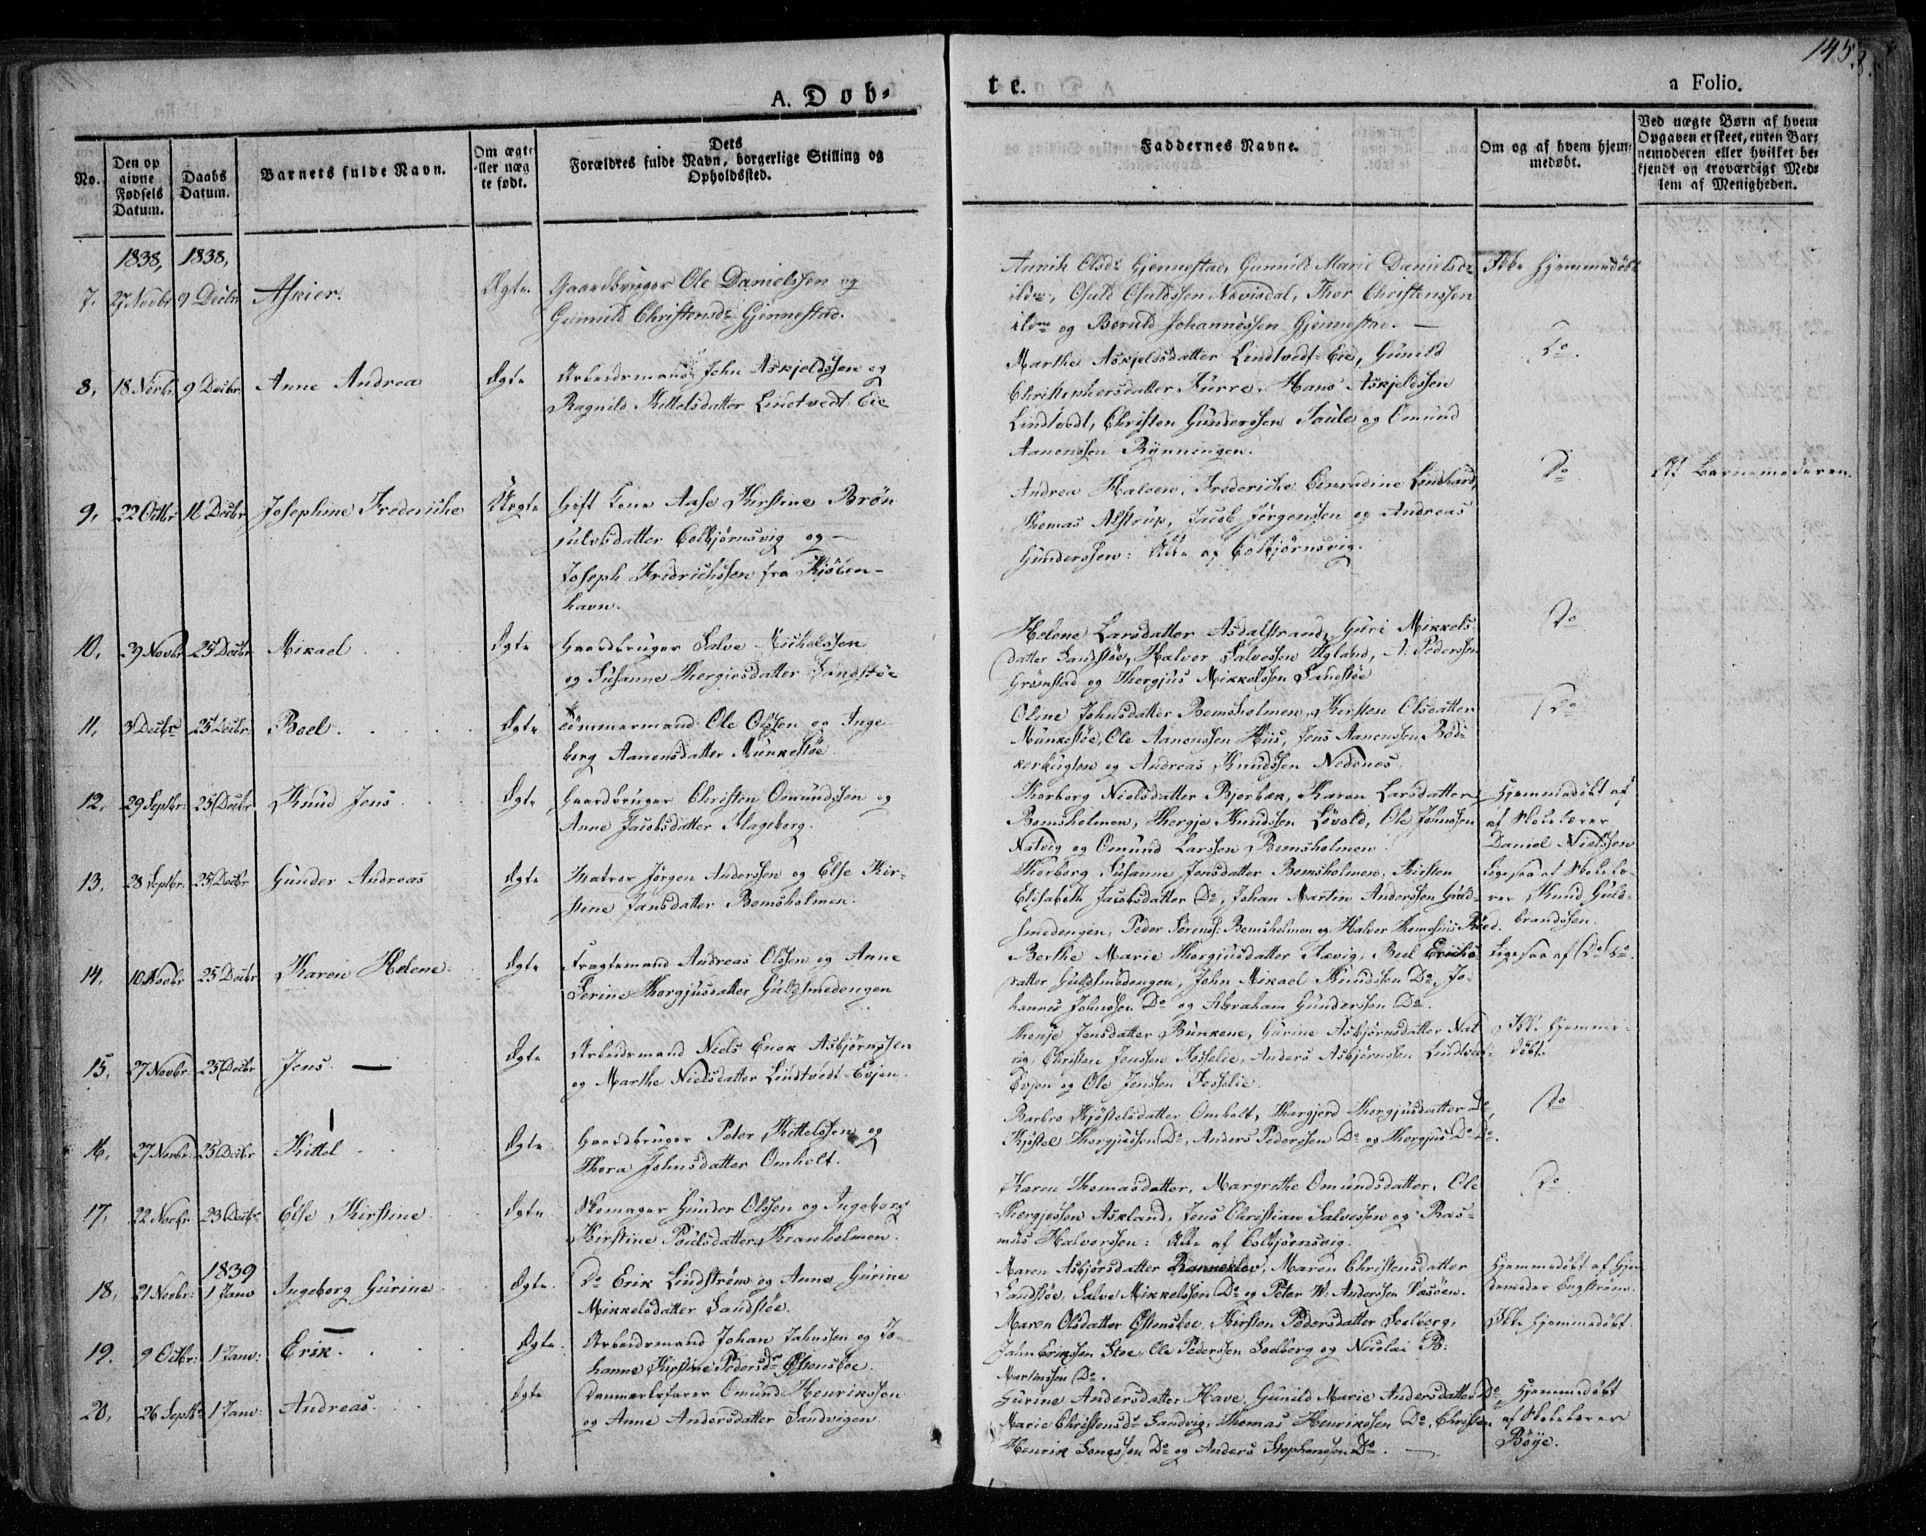 145.
A. Døb-
te.
a Folio.
No.
Den op
givne
Fødsels
Datum.
Daabs
Datum.
Barnets fulde Navn.
Om ægte
eller uæg
te født.
Dets
Forældres fulde Navn, borgerlige Stilling og
Opholdssted.
Faddernes Navne.
Om og af hvem hjem-
medøbt.
Ved uægte Børn af hvem
Opgaven er skeet, enten Bar-
nemoderen eller hvilket be-
kjendt og troværdigt Med-
lem af Menigheden.
1838, 1838,
7. 27 Novbr 9 Decbr Askier. Ægte Gaardbruger Ole Danielssen og
Gunnild Christensdr Gjennestad.
Annik Olsdr Gjennestad, Gunnild Marie Danielsdr
ibdm, Osuld Osuldssen Navisdal, Thor Christenssen
ibdm og Boruld Johannessen Gjennestad. —
Ikke Hjemmedøbt
8. 18 Novbr 9 Decbr Anne Andrea Ægte Arbeidsmand John Askjeldssen og
Ragnild Kittelsdatter Lindtvedt Eie
Marthe Askjeldsdatter Lindtvedt-Eie, Gunild
Christophersdatter Furre, Hans Askjeldssen
Lindtvedt, Christen Gunderssen Saule og Omund
Aanonssen Rønningen.
Do.
9. 22 Octbr 16 Decbr Josephine Frederiche Uægte Gift Kone Aase Kirstine Brøn
julvsdatter Colbjørnsvig og —
Joseph Fridrichssen fra Kjøben-
havn.
Andrea Halven, Frederiche Conradine Lindhard,
Thomas Alstrup, Jacob Jørgenssen og Andreas
Gunderssen: Alle af Colbjørnsvig.
Do
Af Barnemoderen.
10. 29 Novbr 25 Decbr Mikael Ægte Gaardbruger Salve Michelssen
og Susanne Thergiesdatter Sandstøe
Helene Larsdatter Asdalstrand, Guri Mikkels-
datter Sandstøe, Halvor Salvessen Ugland, N: Pederssen
Grømstad og Thergjus Mikkelssen Sandstøe
Do
11. 3 Decbr 25 Decbr Boel. Ægte Tømmermand Ole Olssen og Inge
borg Aanonsdatter Munkestøe
Oline Johnsdatter Bomsholmen, Kirsten Olsdatter
Munkestøe, Ole Aanonssen Huus, Jens Aanonssen Bød-
kerkuglen og Andreas Knudssen Nedenes.
Do
12. 29 Septbr: 25 Decbr Knud Jens Ægte Gaardbruger Christen Omundssen og
Anne Jacobsdatter Klageborg.
Thorborg Nielsdatter Bjorbæk, Karen Larsdatter
Bomsholmen, Thergje Knudssen Løvold, Ole Johnssen
Natvig og Omund Larssen Bomsholmen.
Hjemmedøbt af
af Skolelærer
Daniel Nielssen
13. 28 Septbr: 25 Decbr Gunder Andreas Ægte Matros Jørgen Anderssen og Else Kir-
stine Jansdatter Bomsholmen.
Thorborg Susanne Jensdatter Bomsholmen, Kirsten
Elisabeth Jacobsdatter Do, Johan Martin Anderssen Guld-
smedengen, Peder Sørenss: Bomsholmen og Halvor Thomesius Rued.
Ligesaa af Skolelæ-
rer Knud Guld-
brandssen.
14. 10 Novbr 25 Decbr Karen Helene. Ægte Fragtemand Andreas Olssen og Anne
Serine Thorgjusdatter Guldsmedengen
Berthe Marie Thorgjusdatter Fævig, Boel Erichs-
datter Guldsmedengen, John Mikael Knudssen Do, Jo-
hannes Johnssen Do og Abraham Gunderssen Do.
Ligesaa af Do Do.
15. 27 Novbr 25 Decbr Jens. — Ægte Arbeidsmand Niels Enok Asbjørnssen
og Marthe Nielsdatter Lindtvedt-Evjen.
Jensdatter Bunkene, Gurine Asbjørnsdatter Nat
vig, Christen Jenssen Fosselie, Anders Asbjørnssen Lindtvedt-
Evjen og Ole Jenssen Fosselie.
Ikke Hjemme-
døbt.
16. 27 Novbr 25 Decbr Kittel Ægte Gaardbruger Peter Kittelssen og
Thora Johnsdatter Omholt.
Barbro Kjøstelsdatter Omholt, Thargjerd Thorgjusdatter Do,
Kjøstel Thorgjussen Do, Anders Pederssen Do og Thorgjus Do Do.
Do
17. 22 Novbr 23 Decbr Else Kirstine Ægte Skomager Gunder Olssen og Ingeborg
Kirstine Poulsdatter Kranholmen.
Karen Thomasdatter, Margrethe Omundsdatter, Ole
Thergjessen Askland, Jens Christian Salvessen og Ras-
mus Halvorssen: Alle af Colbjørnsvig.
Do.
1839
18. 21 Novbr: 1 Janv Ingeborg Gurine. Ægte Do Erik Lindstrøm og Anne Gurine
Mikkelsdatter Sandstøe.
Maren Asbjørsdatter Ranneklev, Maren Christensdatter
Sandstøe, Salve Mikkelssen Do og Peter W. Anderssen Væsøen.
Hjemmedøbt af Gjor
demoder Engstrøm.
19. 9 Octbr: 1 Janv: Erik. Ægte. Arbeidsmand Johan Jahnssen og Jo-
hanne Kirstine Pedersdr Østenskoe.
Maren Olsdatter Østenskoe, Kirsten Pedersdatter Solberg,
Jahn Erikssen Stoe, Ole Pederssen Solberg og Nicolai B:
Martinssen Do.
Ikke Hjemmedøbt
20. 26 Septbr 1 Janv: Andreas. Ægte Omund Henrikssen
og Anne Andersdatter Sandvigen
Gurine Andersdatter Have, Gunild Marie Andersdatter Do
Marie Christensdr Sandvig, Thomas Henrikssen Do, Christen
Henrik Do og Anders Stephenssen Do. —
Hjemmedøbt
af Skolelærer
Bøye.